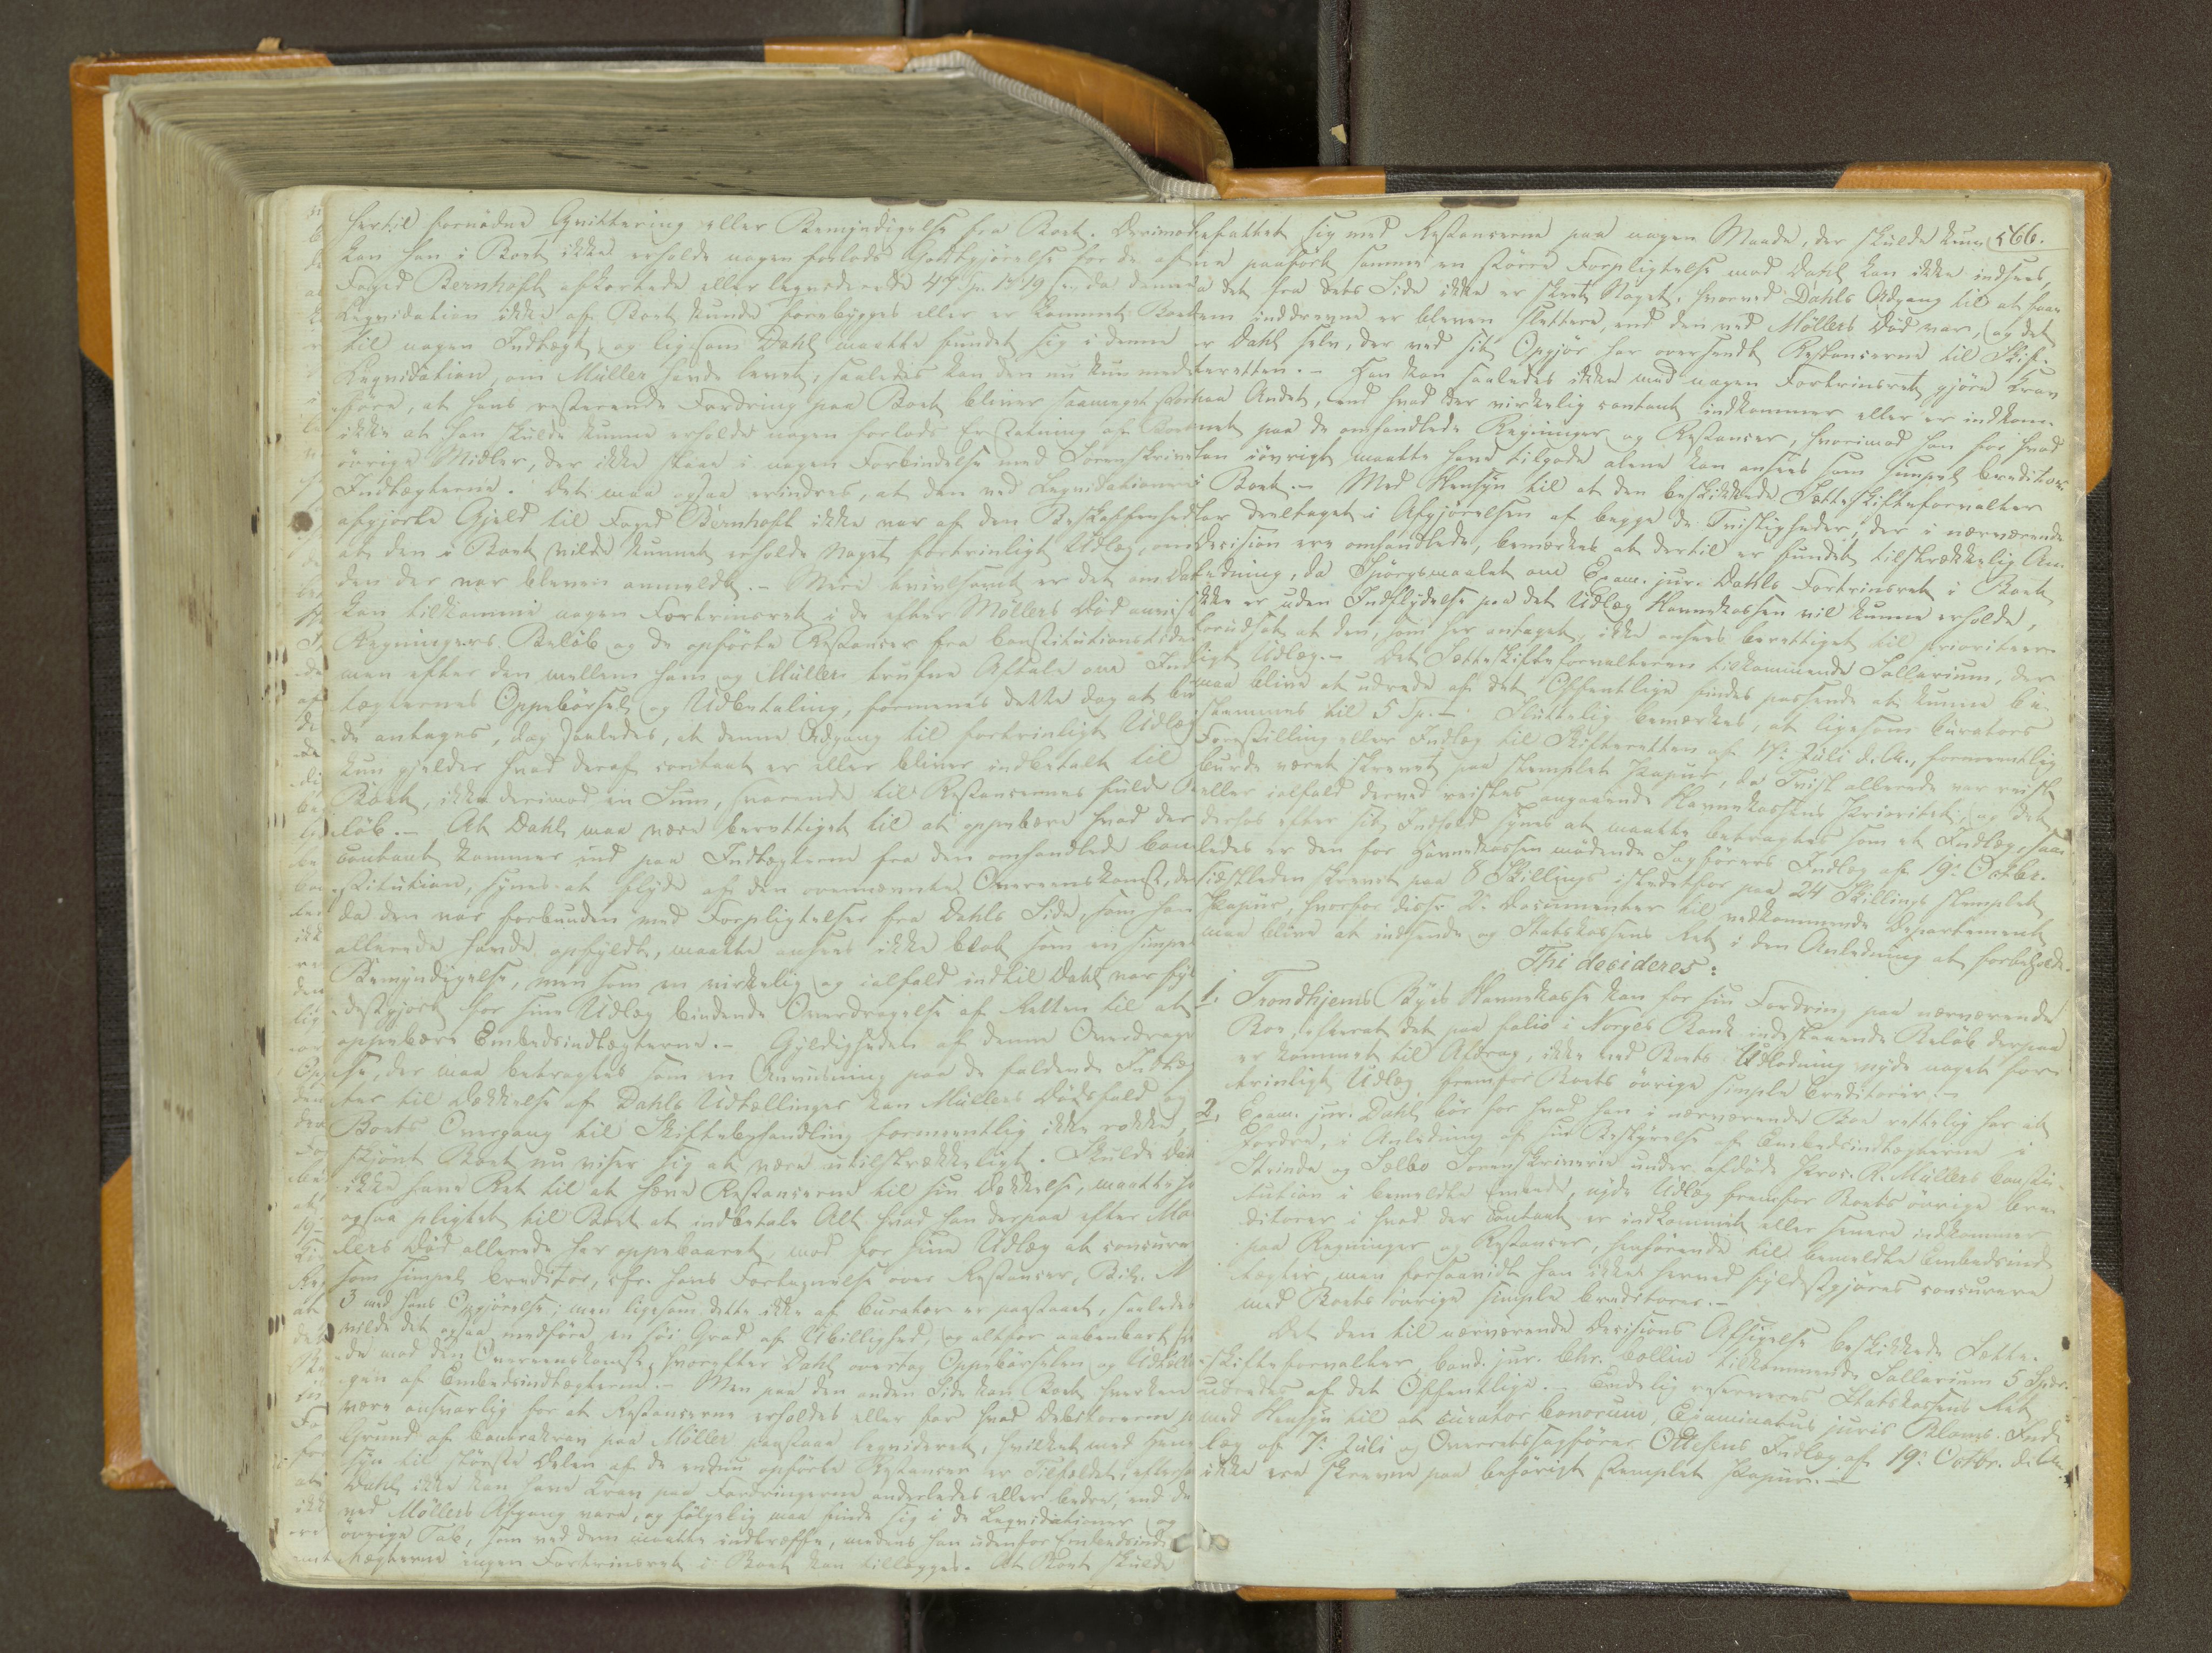 hertil fornødne Qvittering eller Bemyndigelse fra Boet. Derimod
kan han i Boet ikke erholde nogen forlods Godtgjørelse for de af
Foged Bernhoft afkortede eller liqviderede 47 Sp. 19 s, da denne
Liqvidation ikke af Boet kunde forebygges eller er kommet Boet
til nogen Indtægt, og ligesom Dahl maatte fundet sig i denne
Liqvidation, om Müller havde levet, saaledes kan den nu kun med
føre, at hans resterende Fordring paa Boet bliver saameget større
ikke at han skulde kunne erholde nogen forlods Erstatning af Boets
øvrige Midler, der ikke staae i nogen Forbindelse med Sorenskriver
Indtægterne. Det maa ogsaa erindres, at den ved Liqvidationen
afgjorte Gjeld til Foged Bernhoft ikke var af den Beskaffenhed
at den i Boet vilde kunnet erholde Noget fortrinligt Udlæg, om
den der var bleven anmeldt. - Mere tvivlsomt er det om Dahl
kan tilkomme nogen Fortrinsret i de efter Möllers Død anviste
Regningers Beløb og de opførte Restancer fra Constitutionstiden
men efter den mellem ham og Müller trufne Aftale om Ind
tægternes Oppebørsel og Udbetaling, formenes dette dog at bur
de antages, dog saaledes, at denne Adgang til fortrinligt Udlæg
kun gjelder hvad deraf contant er eller bliver indbetalt til
Boet, ikke derimod en Sum, svarende til Restancernes fulde Be
løb. - At Dahl maa være berettiget til at oppebære hvad der
contant kommer ind paa Indtægterne fra den omhandlede Con
stitution, synes at flyde af den ovennævnte Overeenskomst, der
da den var forbunden med Forpligtelser fra Dahls Side, som han
allerede havde opfyldt, maatte ansees ikke blot som en simpel
Bemyndigelse, men som en virkelig og ialfald indtil Dahl var fyl
destgjort for sine Udlæg bindende Overdragelse af Retten til at
oppebære Embedsindtægterne. - Gyldigheden af denne Overdrage
lse, der maa betragtes som en Anvisning paa de faldende Indtæg
ter til Dækkelse af Dahls Udtællinger kan Müllers Dødsfald og
Boets Overgang til Skiftebehandling formeentlig ikke rokke,
skjønt Boet nu viser sig at være utilstrækkeligt. Skulde Dahl
ikke have Ret til at hæve Restancerne til sin Dækkelse, maatte han
ogsaa pligtet til Boet at indbetale Alt hvad han derpaa efter Mö
llers Død allerede har oppebaaret, mod for sine Udlæg at concurrere
som simpel Creditor, cfr. hans Fortegnelse over Restancer, Bil. N
3 med hans Opgjørelse; men ligesom dette ikke af Curator er paastaaet, saaledes
vilde det ogsaa medføre en høi Grad af Ubillighed, og altfor aabenbart stri
de mod den Overeenskomst, hvorefter Dahl overtog Oppebørselen og Udtælli
gen af Embedsindtægterne. - Men paa den anden Side kan Boet hverken
være ansvarlig for at Restancerne erholdes eller for hvad Debitorerne paa
Grund af Contrakrav paa Müller paastaae liqvideret, hvilket med Hen
syn til største Delen af de endnu opførte Restancer er Tilfældet, eftersom
Dahl ikke kan have Krav paa Fordringerne anderledes eller bedre, end de
ved Möllers Afgang vare, og følgelig maa finde sig i de Liqvidationer og
øvrige Tab, som ved dem maatte indtræffe, medens han udenfor Embedsind
tægterne ingen Fortrinsret i Boet kan tillægges. At Boet skulde
566.
befattet sig med Restancerne paa nogen Maade, der skulde kun
ne paaført samme en større Forpligtelse mod Dahl kan ikke indsees,
da det fra dets Side ikke er skeet Noget, hvorved Dahls Adgang til at faae
dem inddrevne er bleven slettere, end den ved Möllers Død var, og det
er Dahl selv, der ved sit Opgjør har oversendt Restancerne til Skif-
teretten. - Han kan saaledes ikke med nogen Fortrinsret gjøre Krav
paa Andet, end hvad der virkelig contant indkommer eller er indkom-
met paa de omhandlede Regninger og Restancer, hvorimod han for hvad
han iøvrigt maatte have tilgode alene kan ansees som simpel Creditor
i Boet. - Med Hensyn til at den beskikkede Setteskifteforvalter
har deeltaget i Afgjørelsen af begge de Tvistigheder, der i nærværende
Decision ere omhandlede, bemærkes at dertil er fundet tilstrækkelig An-
ledning, da Spørgsmaalet om Exam. jur. Dahls Fortrinsret i Boet
ikke er uden Indflydelse paa det Udlæg Havnekassen vil kunne erholde,
forudsat at den, som her antaget, ikke ansees berettiget til prioriteer-
ligt Udlæg. - Det Setteskifteforvalteren tilkommende Sallarium, der
maa blive at udrede af det Offentlige findes passende at kunne be-
stemmes til 5 Sp. - Sluttelig bemærkes, at ligesom Curators
Forestilling eller Indlæg til Skifteretten af 17. Juli d. A., formeentlig
burde været skrevet paa stemplet Papir, da Tvist allerede var reist
eller ialfald derved reistes angaaende Havnekassens Prioritet, og det
derhos efter sit Indhold synes at maatte betragtes som et Indlæg, saa-
ledes er den for Havnekassen mødende Sagførers Indlæg af 19. Octbr.
sidstleden skrevet paa 8 Skillings istedetfor paa 24 Skillings stemplet
Papir, hvorfor disse 2 Documenter til vedkommende Departement
maa blive at indsende og Statskassens Ret i den Anledning at forbeholde.
Thi decideres:
1. Trondhjems Byes Havnekasse kan for sin Fordring paa nærværende
Boe, efterat det paa folio i Norges Bank indestaaende Beløb derpaa
er kommet til Afdrag, ikke ved Boets Udlodning nyde noget for-
trinligt Udlæg fremfor Boets øvrige simple Creditorer. -
2. Exam. jur. Dahl bør for hvad han i nærværende Boe rettelig har at
fordre, i Anledning af sin Bestyrelse af Embedsindtægterne i
Strinde og Selbo Sorenskriverie under afdøde Proc. R. Müllers Consti-
tution i bemeldte Embede, nyde Udlæg fremfor Boets øvrige Cre-
ditorer i hvad der Contant er indkommet eller senere indkommer
paa Regninger og Restancer, henhørende til bemeldte Embedsind-
tægter, men forsaavidt han ikke herved fyldestgjøres concurrere
med Boets øvrige simple Creditorer. -
Det den til nærværende Decisions Afsigelse beskikkede Sette-
skifteforvalter, Cand. jur. Chr. Collin tilkommende Sallarium 5 Spdr.
udredes af det Offentlige. - Endelig reserveres Statskassens Ret
med Hensyn til at Curator bonorum, Examinatus juris Bloms Ind-
læg af 7. Juli og Overretssagfører Ottesens Indlæg af 19. Octbr. d. A.
ikke ere skrevne paa behørigt stemplet Papir. -